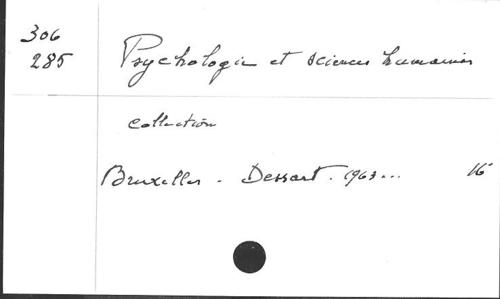 306
285
Psychologie et sciences humaines
collection
Bruxelles - Dessart. 1963... 16°